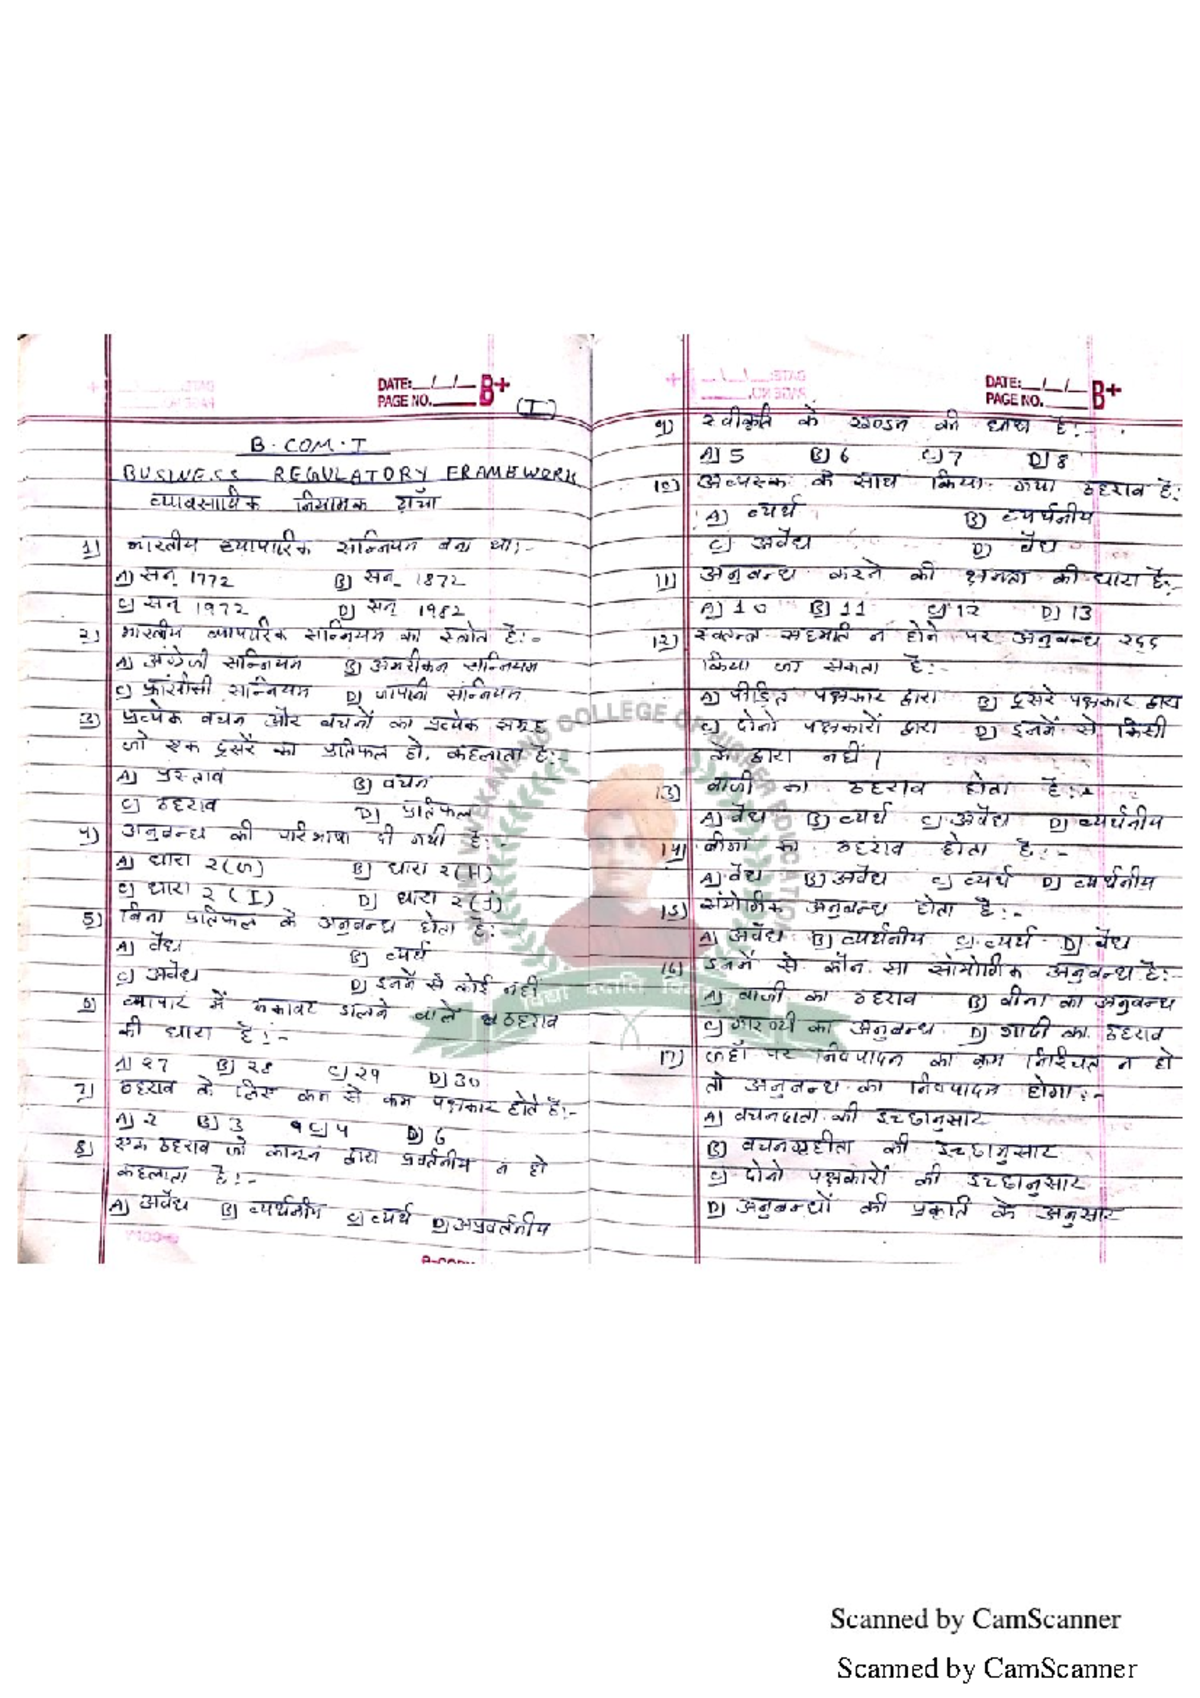 DATE:__/__/__ B+
PAGE NO.
(I)
B.COM.I
BUSINESS REGULATORY FRAMEWORK
व्यावसायिक नियामक ढाँचा
1) भारतीय व्यापारिक सन्नियम बना था:-
A) सन् 1772 B) सन् 1872
C) सन् 1972 D) सन् 1982
2) भारतीय व्यापारिक सन्नियम का स्त्रोत है:-
A) अंग्रेजी सन्नियम B) अमरीकन सन्नियम
C) फ्रांसीसी सन्नियम D) जापानी सन्नियम
3) प्रत्येक वचन और वचनों का प्रत्येक समूह
जो एक दूसरे का प्रतिफल हो, कहलाता है:-
A) प्रस्ताव B) वचन
C) ठहराव D) प्रतिफल
4) अनुबन्ध की परिभाषा दी गयी है:-
A) धारा 2(G) B) धारा 2(H)
C) धारा 2(I) D) धारा 2(J)
5) बिना प्रतिफल के अनुबन्ध होता है:
A) वैध B) व्यर्थ
C) अवैध D) इनमें से कोई नहीं
6) व्यापार में रूकावट डालने वाले ठहराव
की धारा है:-
A) 27 B) 28 C) 29 D) 30
7) ठहराव के लिए कम से कम पक्षकार होते है:-
A) 2 B) 3 C) 4 D) 6
8) एक ठहराव जो कानून द्वारा प्रवर्तनीय न हो
कहलाता है:-
A) अवैध B) व्यर्थनीय C) व्यर्थ D) अप्रवर्तनीय
DATE:__/__/__ B+
PAGE NO.
9) स्वीकृति के खण्डन की धारा है:-
A) 5 B) 6 C) 7 D) 8
10) अव्यस्क के साथ किया गया ठहराव है:
A) व्यर्थ B) व्यर्थनीय
C) अवैध D) वैध
11) अनुबन्ध करने की क्षमता की धारा है:-
A) 10 B) 11 C) 12 D) 13
12) स्वतन्त सहमति न होने पर अनुबन्ध रद्द
किया जा सकता है:-
A) पीड़ित पक्षकार द्वारा B) दूसरे पक्षकार द्वारा
C) दोनो पक्षकारों द्वारा D) इनमें से किसी
के द्वारा नहीं।
13) बाजी का ठहराव होता है:-
A) वैध B) व्यर्थ C) अवैध D) व्यर्थनीय
14) बीमा का ठहराव होता है:-
A) वैध B) अवैध C) व्यर्थ D) व्यर्थनीय
15) संयोगिक अनुबन्ध होता है:-
A) अवैध B) व्यर्थनीय C) व्यर्थ D) वैध
16) इनमें से कौन सा सांयोगिक अनुबन्ध है:-
A) बाजी का ठहराव B) बीमा का अनुबन्ध
C) गारण्टी का अनुबन्ध D) शादी का ठहराव
17) जहाँ पर निष्पादन का क्रम निश्चित न हो
तो अनुबन्ध का निष्पादन होगा:-
A) वचनदाता की इच्छानुसार
B) वचनग्रहीता की इच्छानुसार
C) दोनो पक्षकारों की इच्छानुसार
D) अनुबन्धों की प्रकृति के अनुसार
Scanned by CamScanner
Scanned by CamScanner